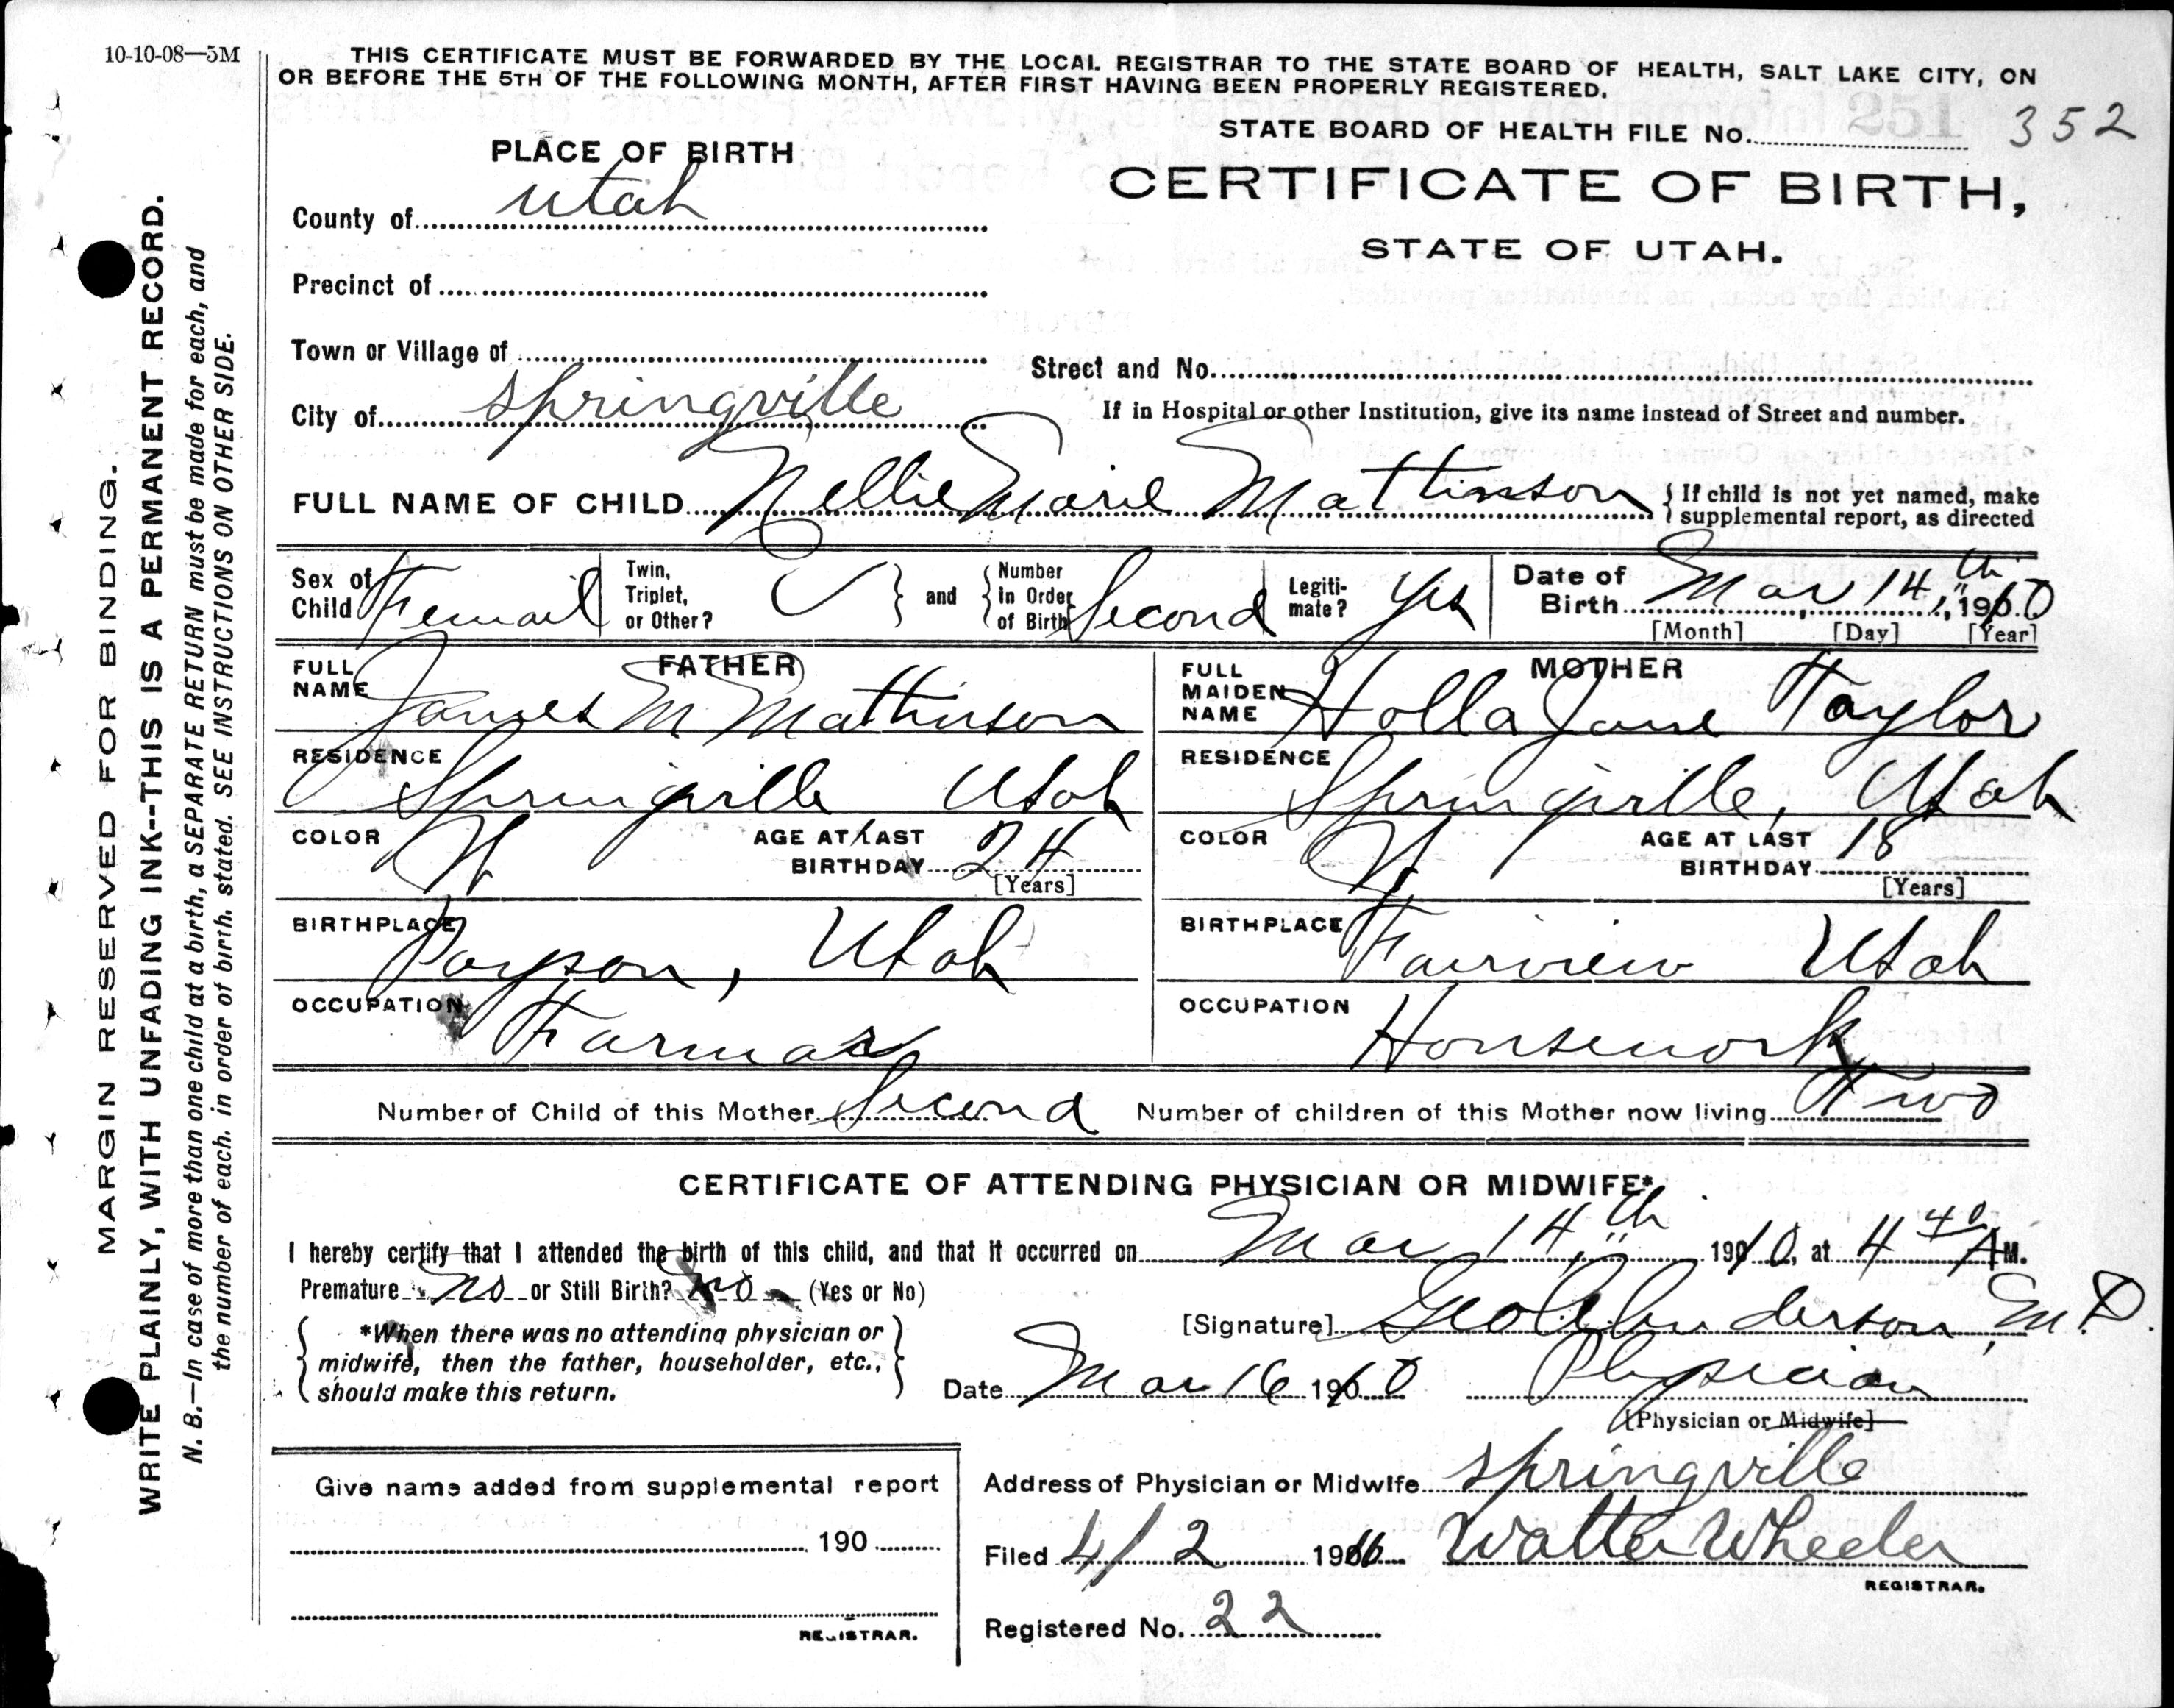 10-10-08—5M
THIS CERTIFICATE MUST BE FORWARDED BY THE LOCAL REGISTRAR TO THE STATE BOARD OF HEALTH, SALT LAKE CITY, ON
OR BEFORE THE 5TH OF THE FOLLOWING MONTH, AFTER FIRST HAVING BEEN PROPERLY REGISTERED.
STATE BOARD OF HEALTH FILE No. 352
PLACE OF BIRTH
CERTIFICATE OF BIRTH,
STATE OF UTAH.
County of Utah
Precinct of
Town or Village of
Street and No.
City of Springville
If in Hospital or other Institution, give its name instead of Street and number.
FULL NAME OF CHILD Nellie Marie Mattinson
If child is not yet named, make
supplemental report, as directed
Sex of Child Femail
Twin, Triplet, or Other?
and
Number in Order of Birth Second
Legitimate? Yes
Date of Birth Mar 14th, 1910
[Month] [Day] [Year]
FATHER
FULL NAME James M Mattinson
RESIDENCE Springville Utah
COLOR W
AGE AT LAST BIRTHDAY 24
[Years]
BIRTHPLACE Payson, Utah
OCCUPATION Farmar
MOTHER
FULL MAIDEN NAME Holla Jane Taylor
RESIDENCE Springville, Utah
COLOR W
AGE AT LAST BIRTHDAY 18
[Years]
BIRTHPLACE Fairview Utah
OCCUPATION Housework
Number of Child of this Mother Second Number of children of this Mother now living Two
CERTIFICATE OF ATTENDING PHYSICIAN OR MIDWIFE*
I hereby certify that I attended the birth of this child, and that it occurred on Mar 14th, 1910, at 4 40 A M.
Premature No or Still Birth? No (Yes or No)
*When there was no attending physician or
midwife, then the father, householder, etc.,
should make this return.
[Signature] Geo Anderson, M.D.
Date Mar 16 1910 Physician
[Physician or Midwife]
Give name added from supplemental report
190
REGISTRAR.
Address of Physician or Midwife Springville
Filed 4/2 1910 Walter Wheeler
REGISTRAR.
Registered No. 22
MARGIN RESERVED FOR BINDING.
WRITE PLAINLY, WITH UNFADING INK--THIS IS A PERMANENT RECORD.
N. B.—In case of more than one child at a birth, a SEPARATE RETURN must be made for each, and
the number of each, in order of birth, stated. SEE INSTRUCTIONS ON OTHER SIDE.